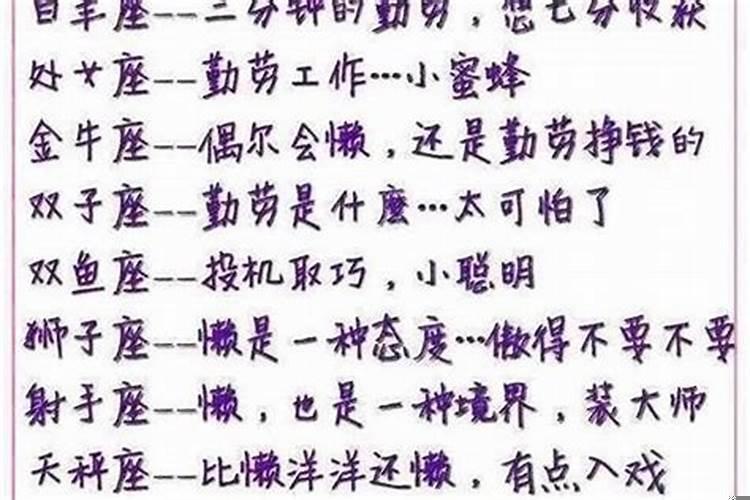 白羊座--三分钟的勤劳，想七分收获
处女座--勤劳工作…小蜜蜂
金牛座--偶尔会懒，还是勤劳挣钱的
双子座--勤劳是什麼…太可怕了
双鱼座--投机取巧，小聪明
狮子座--懒是一种态度…傲得不要不要
射手座--懒，也是一种境界，装大师
天秤座--比懒洋洋还懒，有点入戏